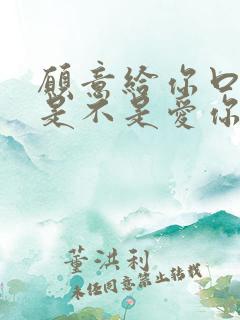 願意給你口
是不是愛你
董洪利
未任同意禁止转载